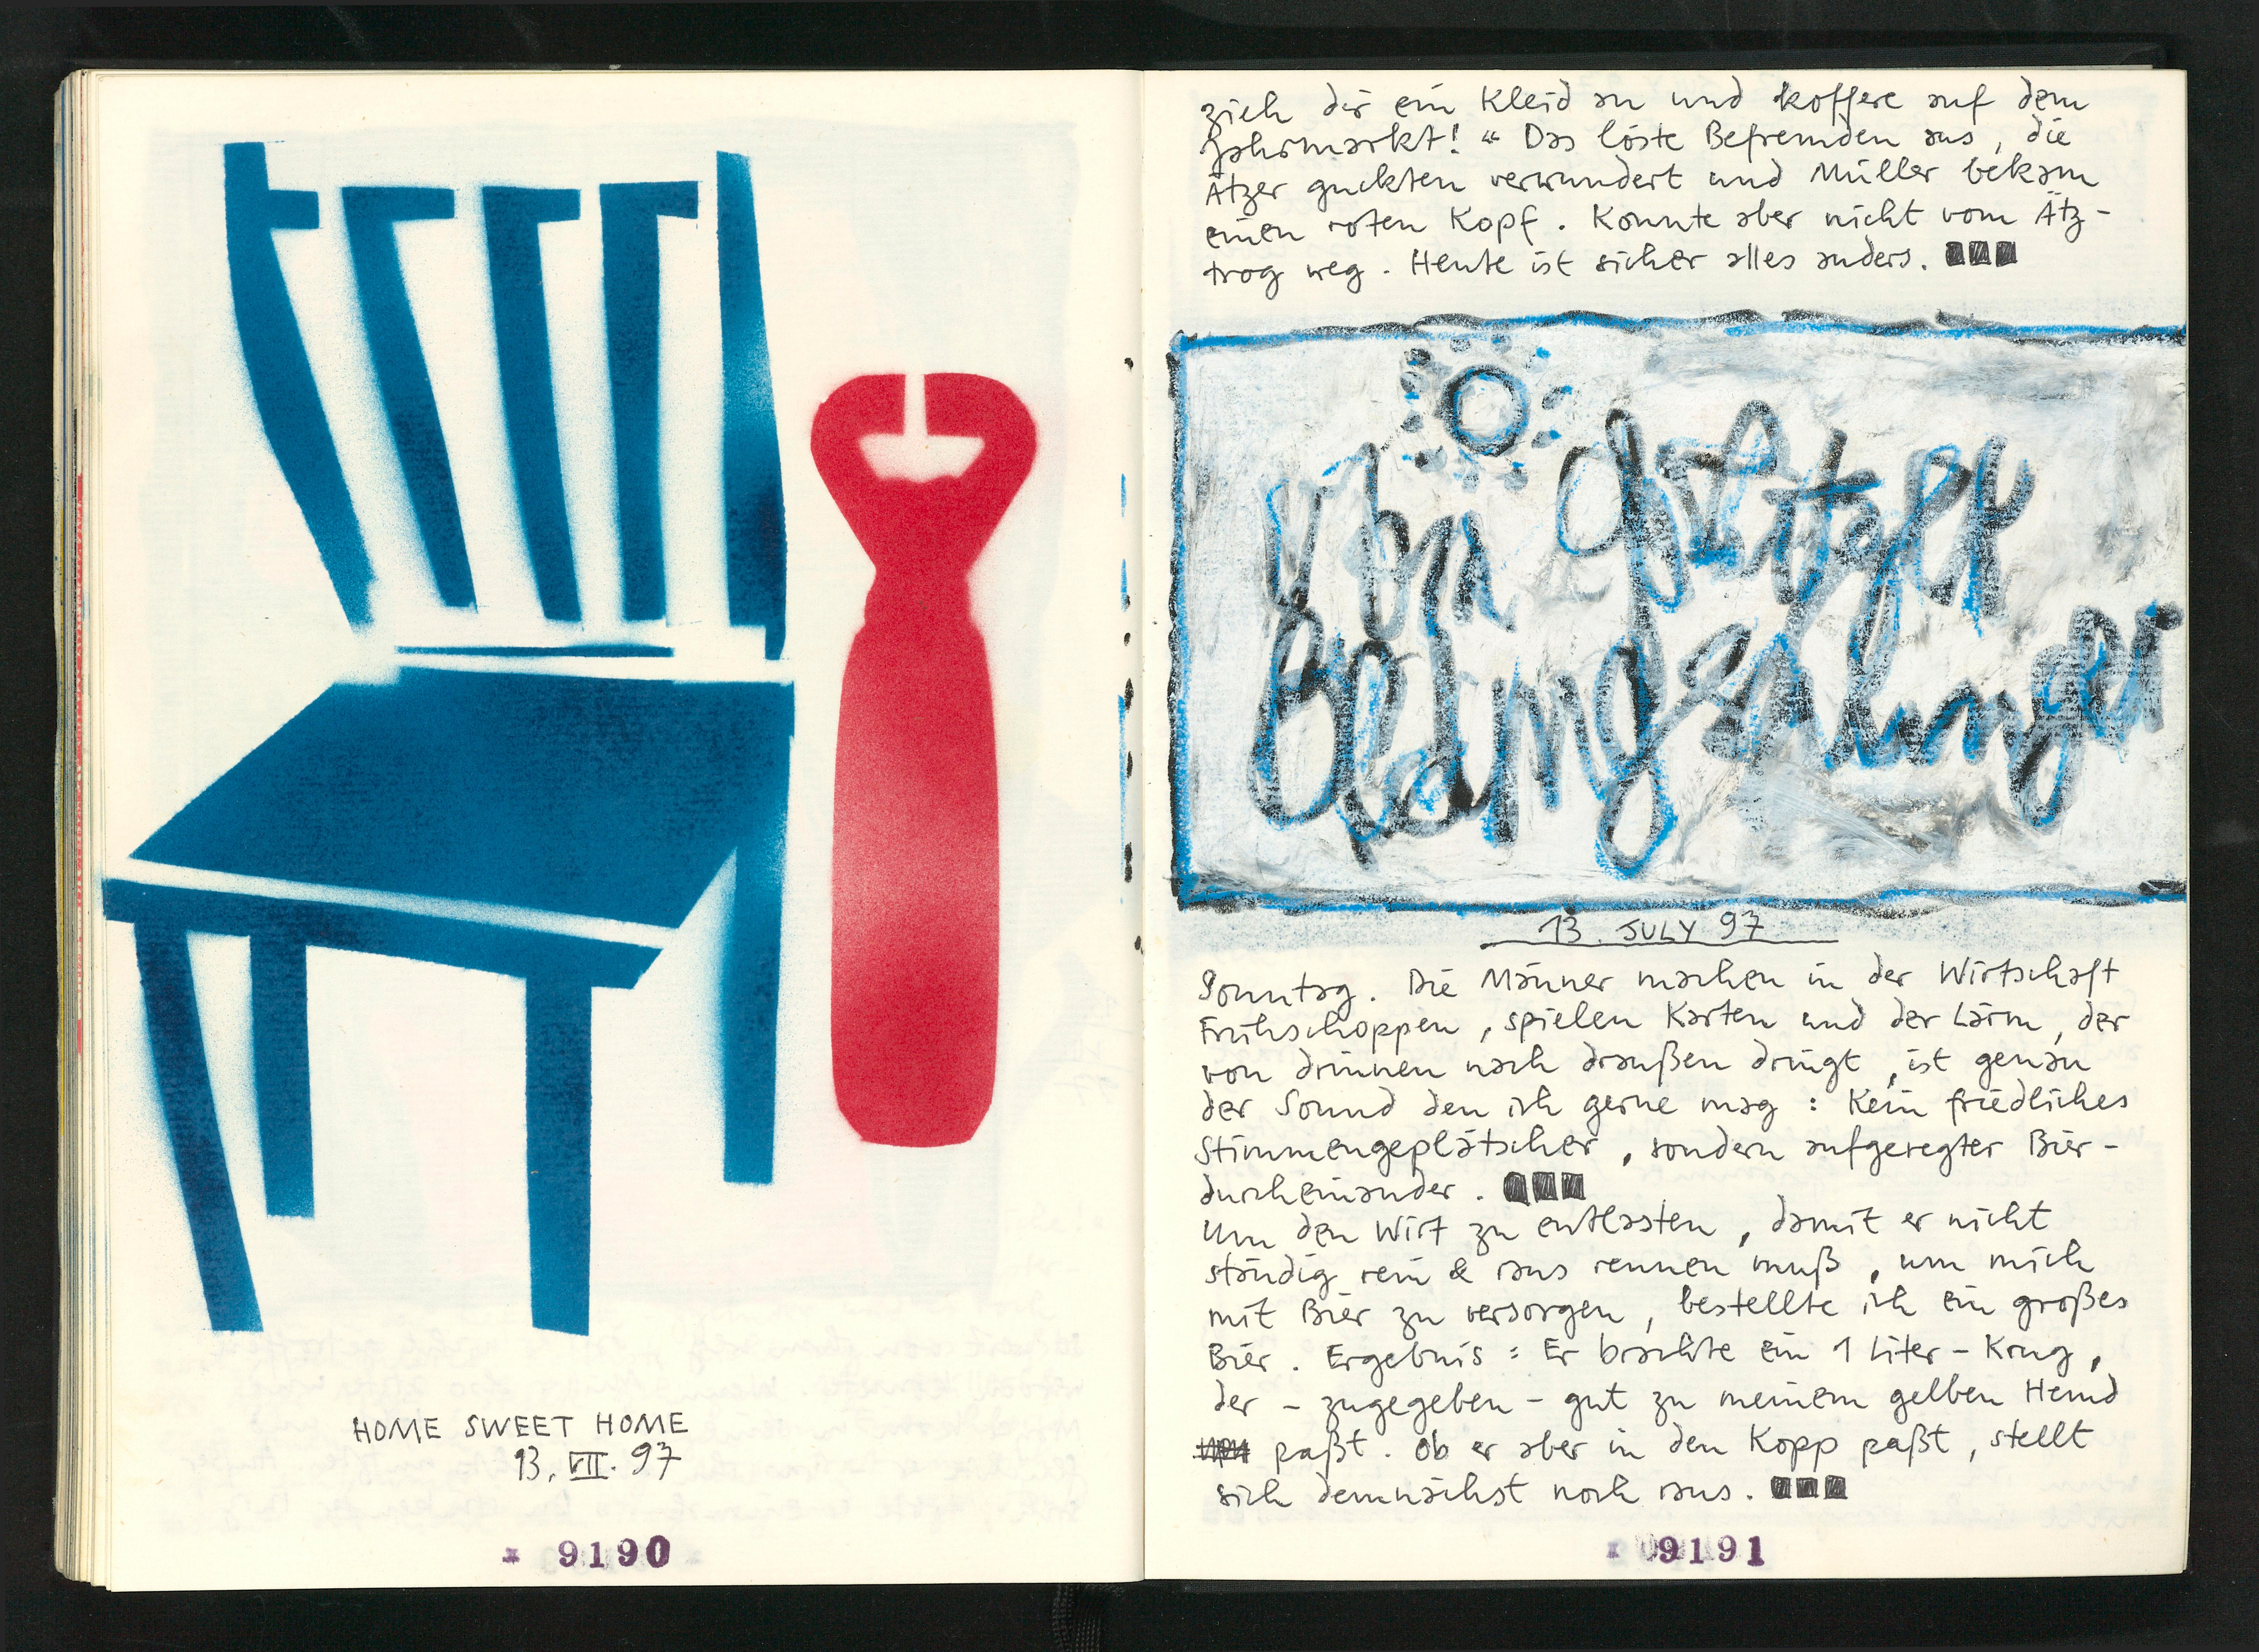 HOME SWEET HOME
13. VII. 97
9190
zieh dir ein Kleid an und koffere auf dem
Jahrmarkt!“ Das löste Befremden aus, die
Ätzer guckten verwundert und Müller bekam
einen roten Kopf. Konnte aber nicht vom Ätz-
trog weg. Heute ist sicher alles anders.
Von
13. JULY 97
Sonntag. Die Männer machen in der Wirtschaft
Frühschoppen, spielen Karten und der Lärm, der
von drinnen nach draußen dringt, ist genau
der Sound den ich gerne mag: Kein friedliches
Stimmengeplätscher, sondern aufgeregter Bier-
durcheinander.
Um den Wirt zu entlasten, damit er nicht
ständig rein & raus rennen muß, um mich
mit Bier zu versorgen, bestellte ich ein großes
Bier. Ergebnis: Er brachte ein 1 Liter-Krug,
der – zugegeben – gut zu meinem gelben Hemd
paßt. Ob er aber in den Kopp paßt, stellt
sich demnächst noch raus.
9191